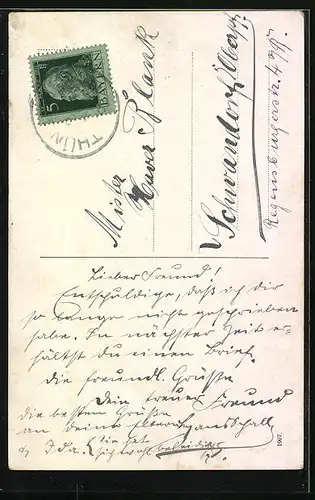 5
BAYERN
THÜN
Mister
Xaver Plank
Schwandorf
Regensburgerstr.
Lieber Freund!
Entschuldige, daß ich dir
so lange nicht geschrieben
habe. In nächster Zeit er=
hältst du einen Brief.
die freundl. Grüße
Dein treuer Freund
die besten Grüße
an deine
& Ida. Sie hat
sich wohl
1907.